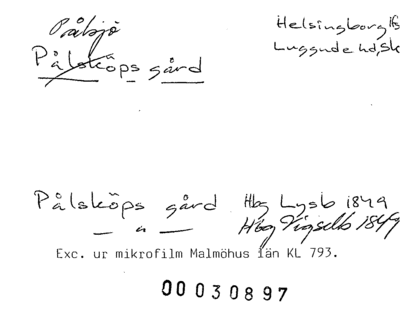 Pålsjö
Helsingborg lfs
Pålsköps gård
Luggude hd, Sk
Pålsköps gård Hbg Lysb 1849
— " — Hbg Vigselb 1849
Exc. ur mikrofilm Malmöhus län KL 793.
0030897